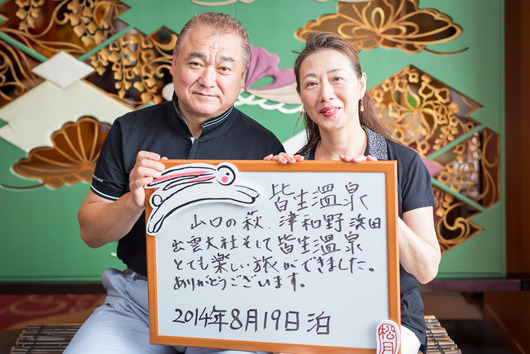 皆生温泉
山口の萩、津和野 浜田
出雲大社そして皆生温泉
とても楽しい旅ができました。
ありがとうございます。
2014年8月19日 泊
松月